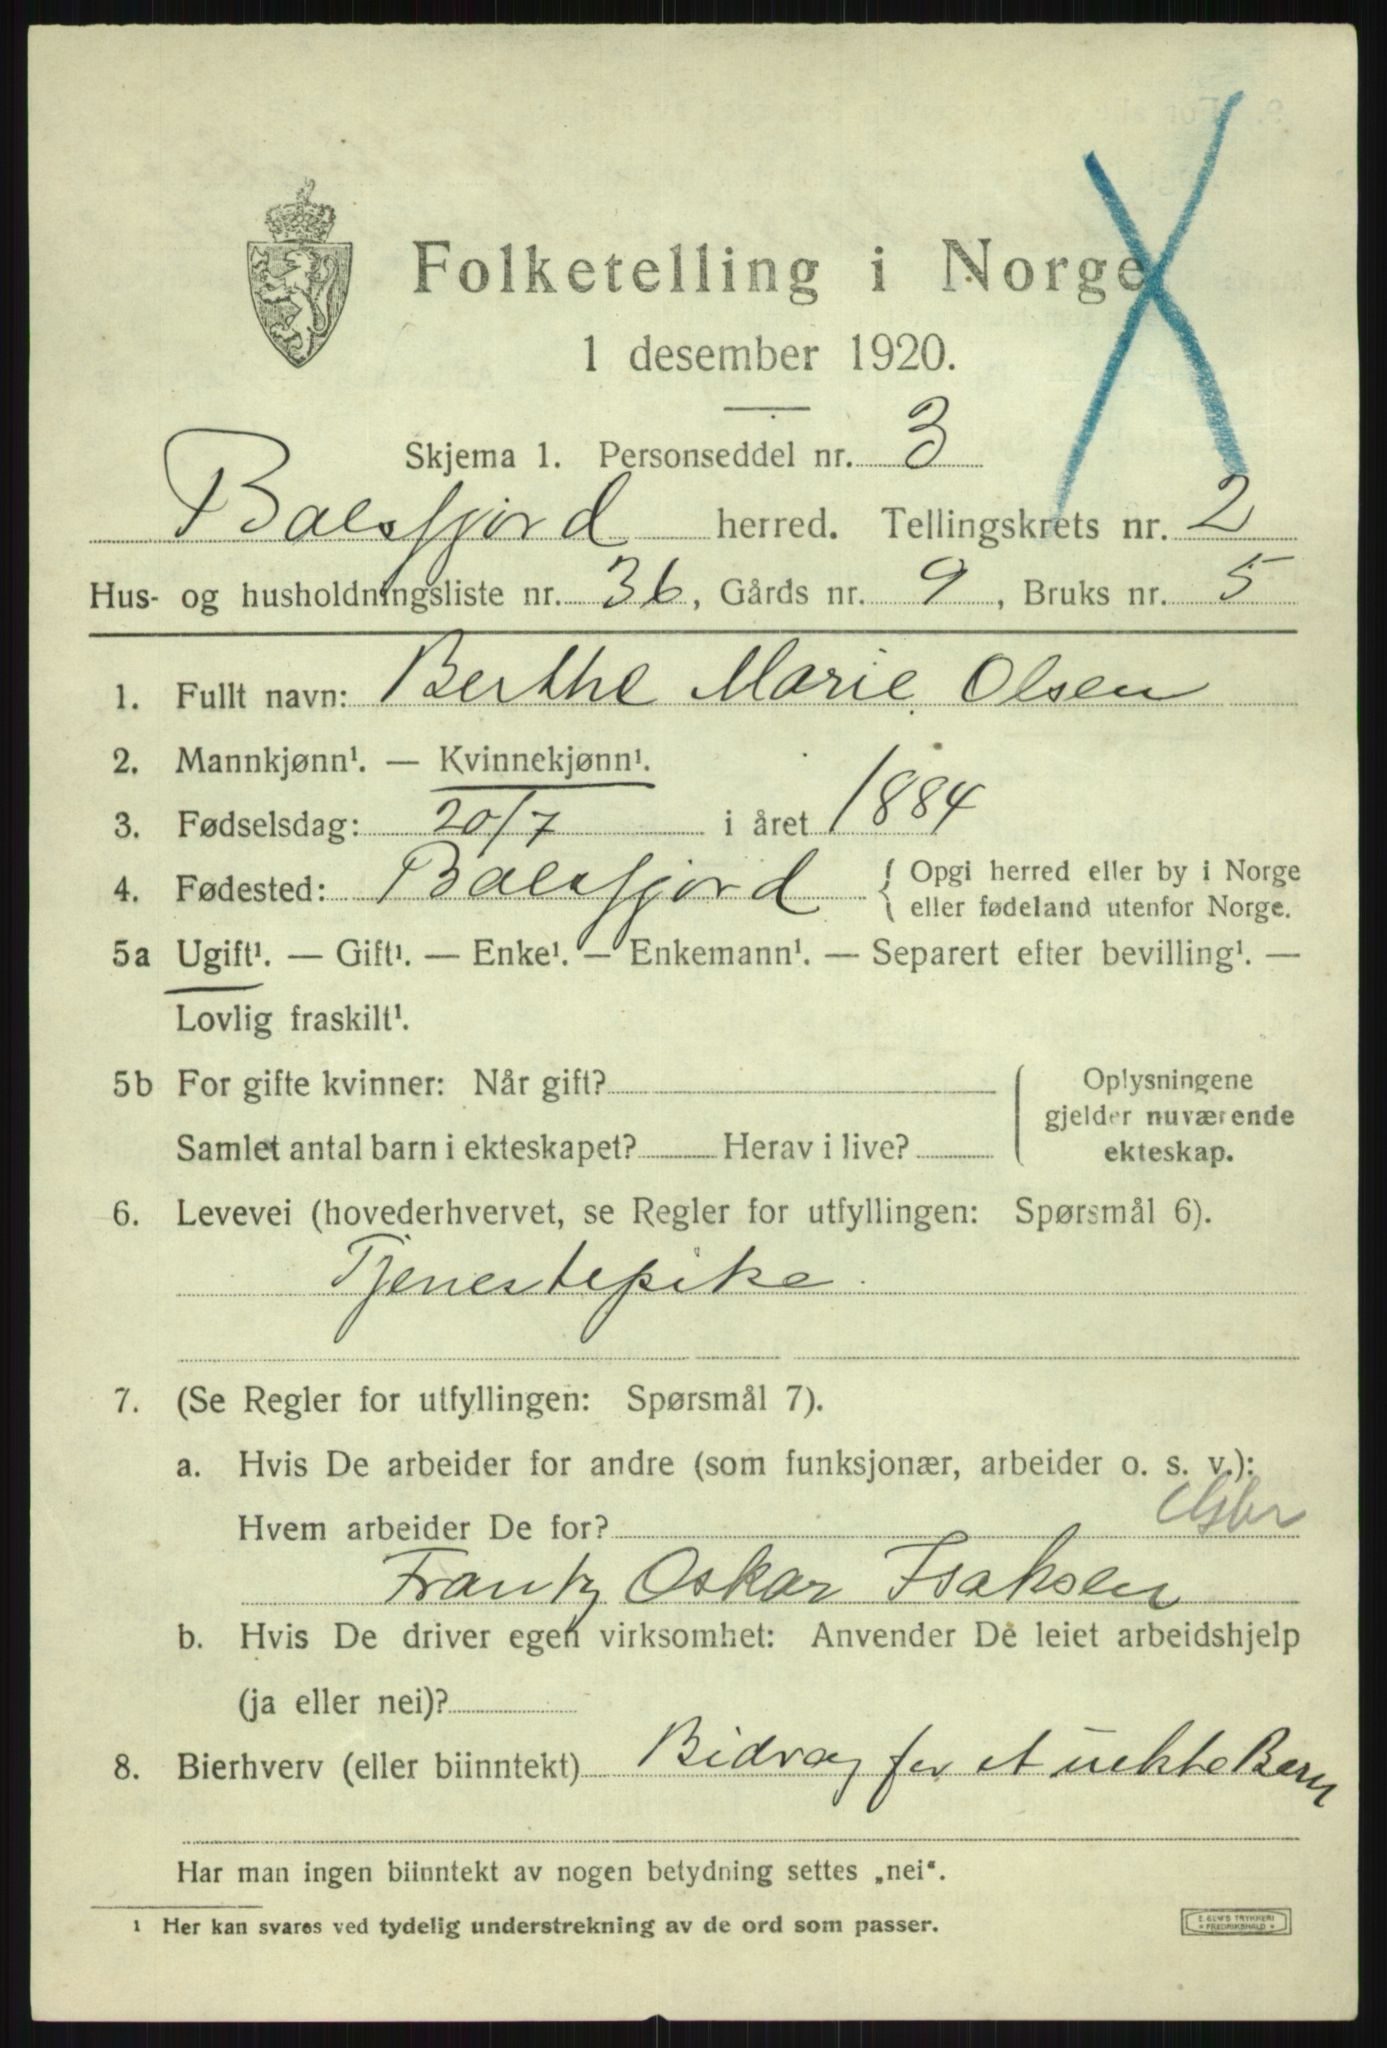 Folketelling i Norge
1 desember 1920.
Skjema 1. Personseddel nr. 3
Balsfjord herred. Tellingskrets nr. 2
Hus- og husholdningsliste nr. 36, Gårds nr. 9, Bruks nr. 5
1. Fullt navn: Berthe Marie Olsen
2. Mannkjønn¹. — Kvinnekjønn¹.
3. Fødselsdag: 20/7 i året 1884
4. Fødested: Balsfjord { Opgi herred eller by i Norge
eller fødeland utenfor Norge.
5a Ugift¹. — Gift¹. — Enke¹. — Enkemann¹. — Separert efter bevilling¹. —
Lovlig fraskilt¹.
5b For gifte kvinner: Når gift?
Samlet antal barn i ekteskapet? Herav i live?
Oplysningene
gjelder nuværende
ekteskap.
6. Levevei (hovederhvervet, se Regler for utfyllingen: Spørsmål 6).
Tjenestepike.
7. (Se Regler for utfyllingen: Spørsmål 7).
a. Hvis De arbeider for andre (som funksjonær, arbeider o. s. v.):
Hvem arbeider De for?
Frantz Oskar Isaksen
b. Hvis De driver egen virksomhet: Anvender De leiet arbeidshjelp
(ja eller nei)?
8. Bierhverv (eller biinntekt) Bidrag for et uekte Barn
Har man ingen biinntekt av nogen betydning settes „nei“.
¹ Her kan svares ved tydelig understrekning av de ord som passer.